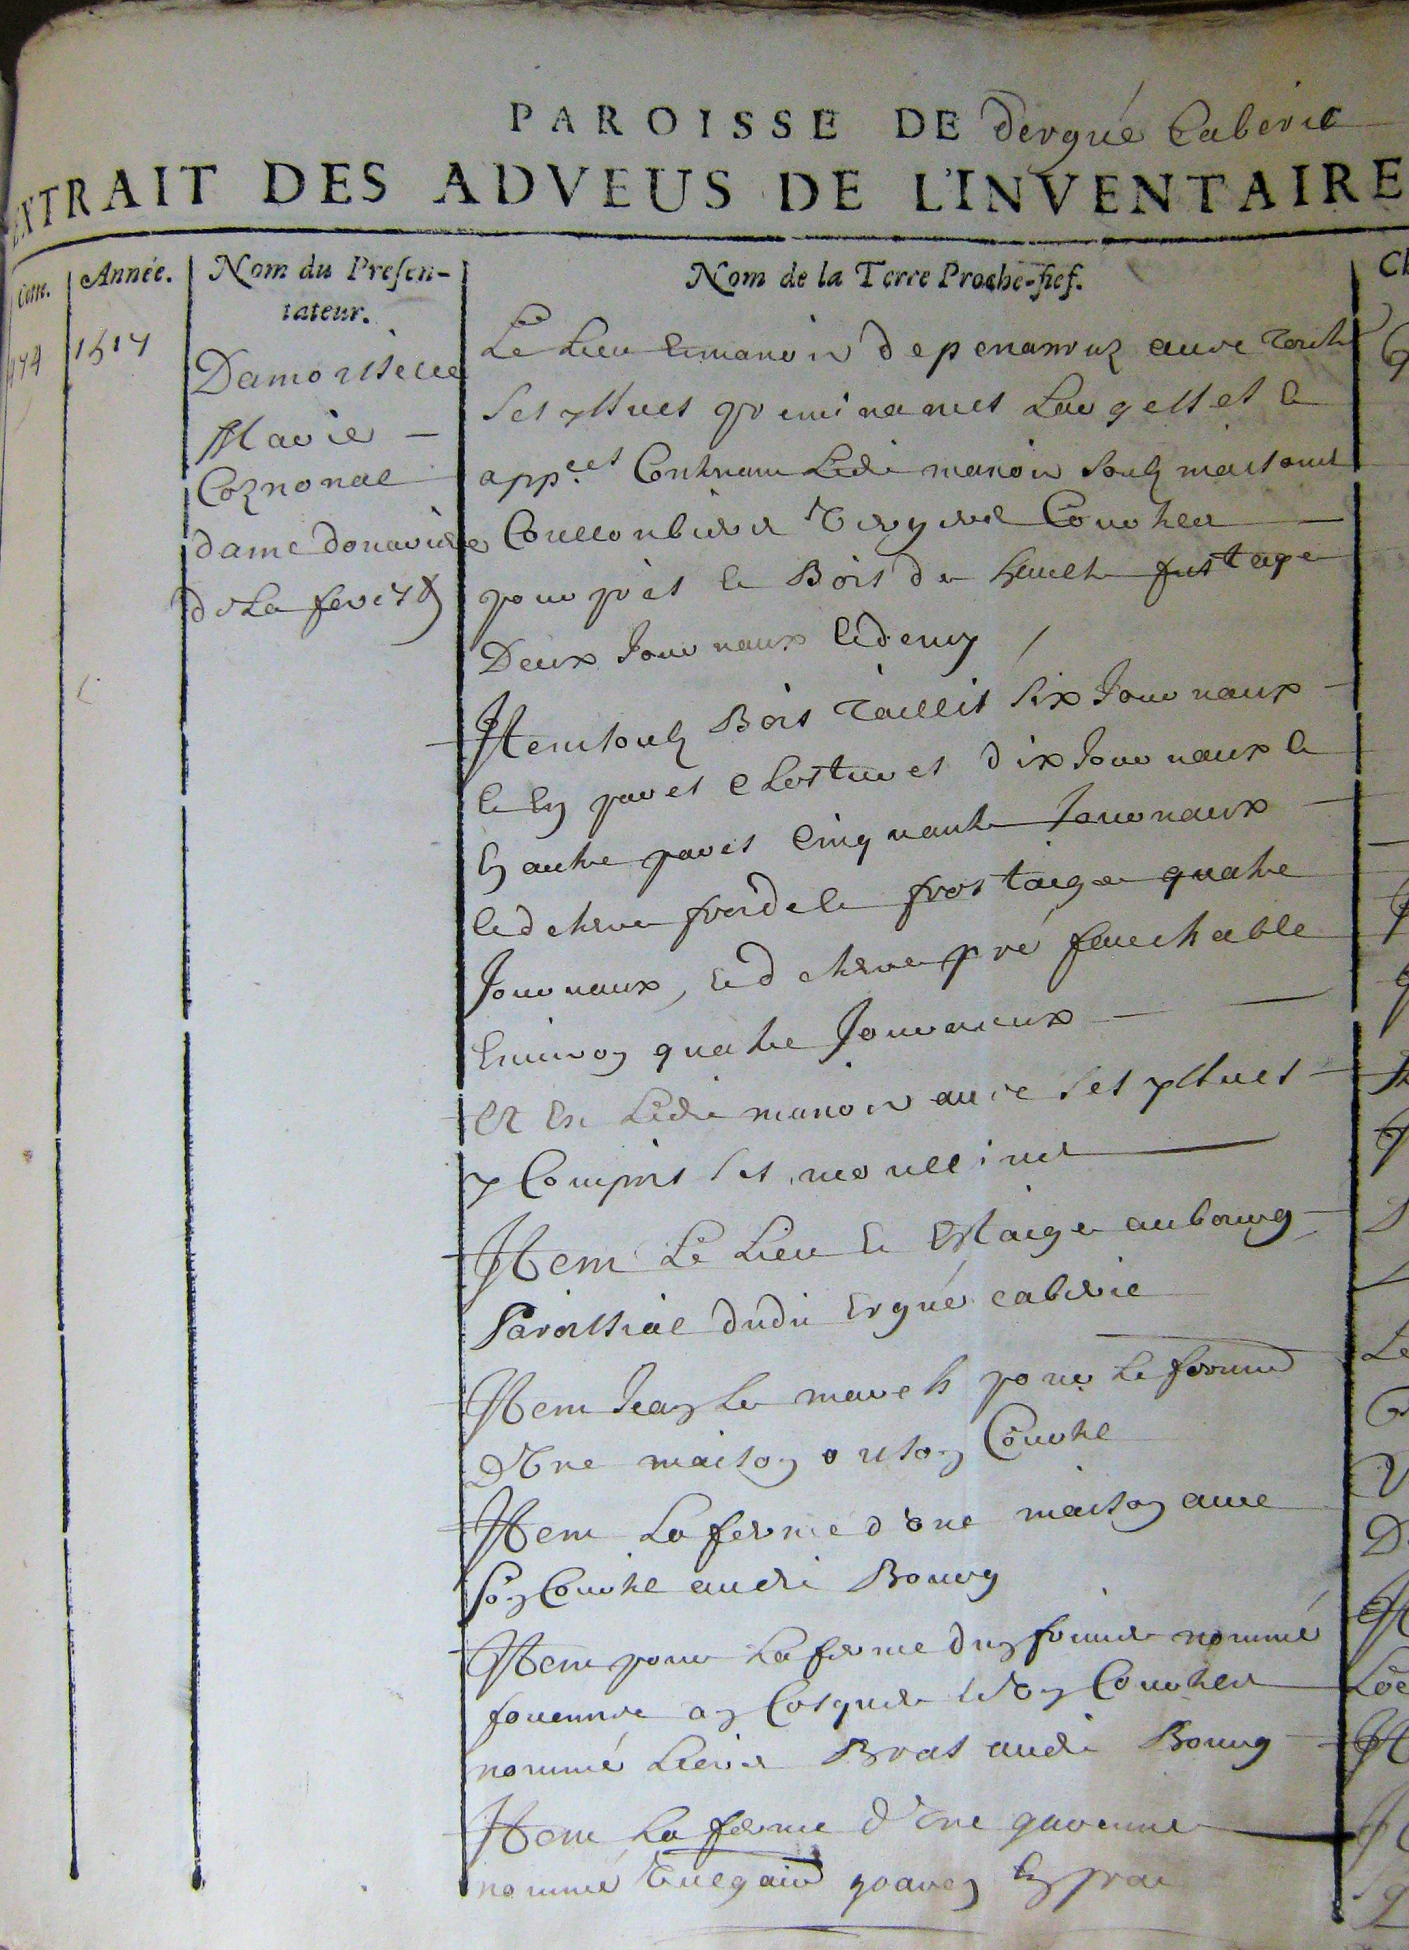 PAROISSE DE d'ergué Gaberic
EXTRAIT DES ADVEUS DE L'INVENTAIRE
Cotte.
Année.
Nom du Presen-
tateur.
Nom de la Terre Proche-fief.
1517
Damoiselle
Marie
Coznoual
dame donairiere
de La
Le Lieu et manoir de penanrun avec
ses yssues preeminances et
app.ces Contenant Ledit manoir soulz maisons
Coullonbier Vergers Courtils
pourpris et Bois de haulte fustaye
Deux Journaux et demy
Item soulz Bois Taillis six Journaux
et En parcs Clostures dix Journaux et
En autre parcs Cinquante Journaux
et de terre froide et frostaige quatre
Journaux, et de terre pré fauchable
Environ quatre Journaux
Et En Ledit manoir avec ses yssues
y Compris ses moullins
Item Le Lieu et Estaige au bourg
Paroissial dudit Ergué Gaberic
Item Jean Le march pour La ferme
D'Une maison o son Courtil
Item La ferme d'une maison avec
son Courtil audit Bourg
Item pour La ferme d'un nommé
an Cosquer Et Un Courtil
nommé Bras audit Bourg
Item La ferme d'Une garenne
nommé